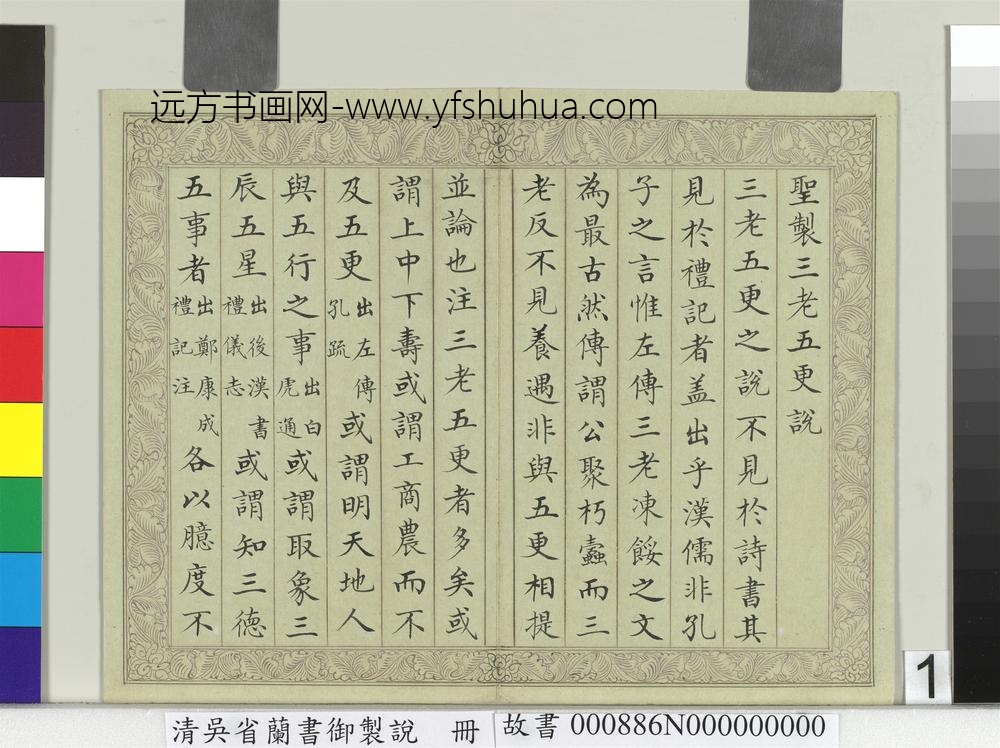 远方书画网-www.yfshuhua.com
聖製三老五更說
三老五更之說不見於詩書其
見於禮記者盖出乎漢儒非孔
子之言惟左傳三老凍餒之文
為最古然傳謂公聚朽蠹而三
老反不見養遇非與五更相提
並論也注三老五更者多矣或
謂上中下壽或謂工商農而不
及五更出左傳孔疏或謂明天地人
與五行之事出白虎通或謂取象三
辰五星出後漢書禮儀志或謂知三德
五事者出鄭康成禮記注各以臆度不
1
清吳省蘭書御製說 冊
故書 000886N000000000